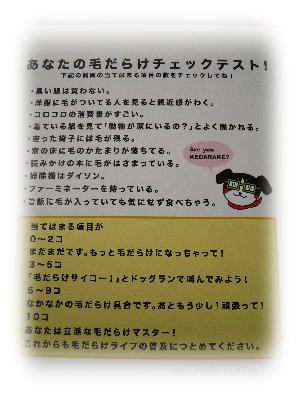 あなたの毛だらけチェックテスト!
下記の質問の当てはまる項目の数をチェックしてね!
・黒い服は買わない。
・洋服に毛がついてる人を見ると親近感がわく。
・コロコロの消費量がすごい。
・着ている服を見て「動物が家にいるの?」とよく聞かれる。
・座った椅子には毛が残る。
・家の床に毛のかたまりが落ちてる。
・読みかけの本に毛がはさまっている。
・掃除機はダイソン。
・ファーミネーターを持っている。
・ご飯に毛が入っていても気にせず食べちゃう。
Are you
KEDARAKE?
当てはまる項目が
0〜2コ
まだまだです。もっと毛だらけになっちゃって!
3〜5コ
「毛だらけサイコー!」とドッグランで叫んでみよう!
6〜9コ
なかなかの毛だらけ具合です。あともう少し!頑張って!
10コ
あなたは立派な毛だらけマスター!
これからも毛だらけライフの普及につとめてください。